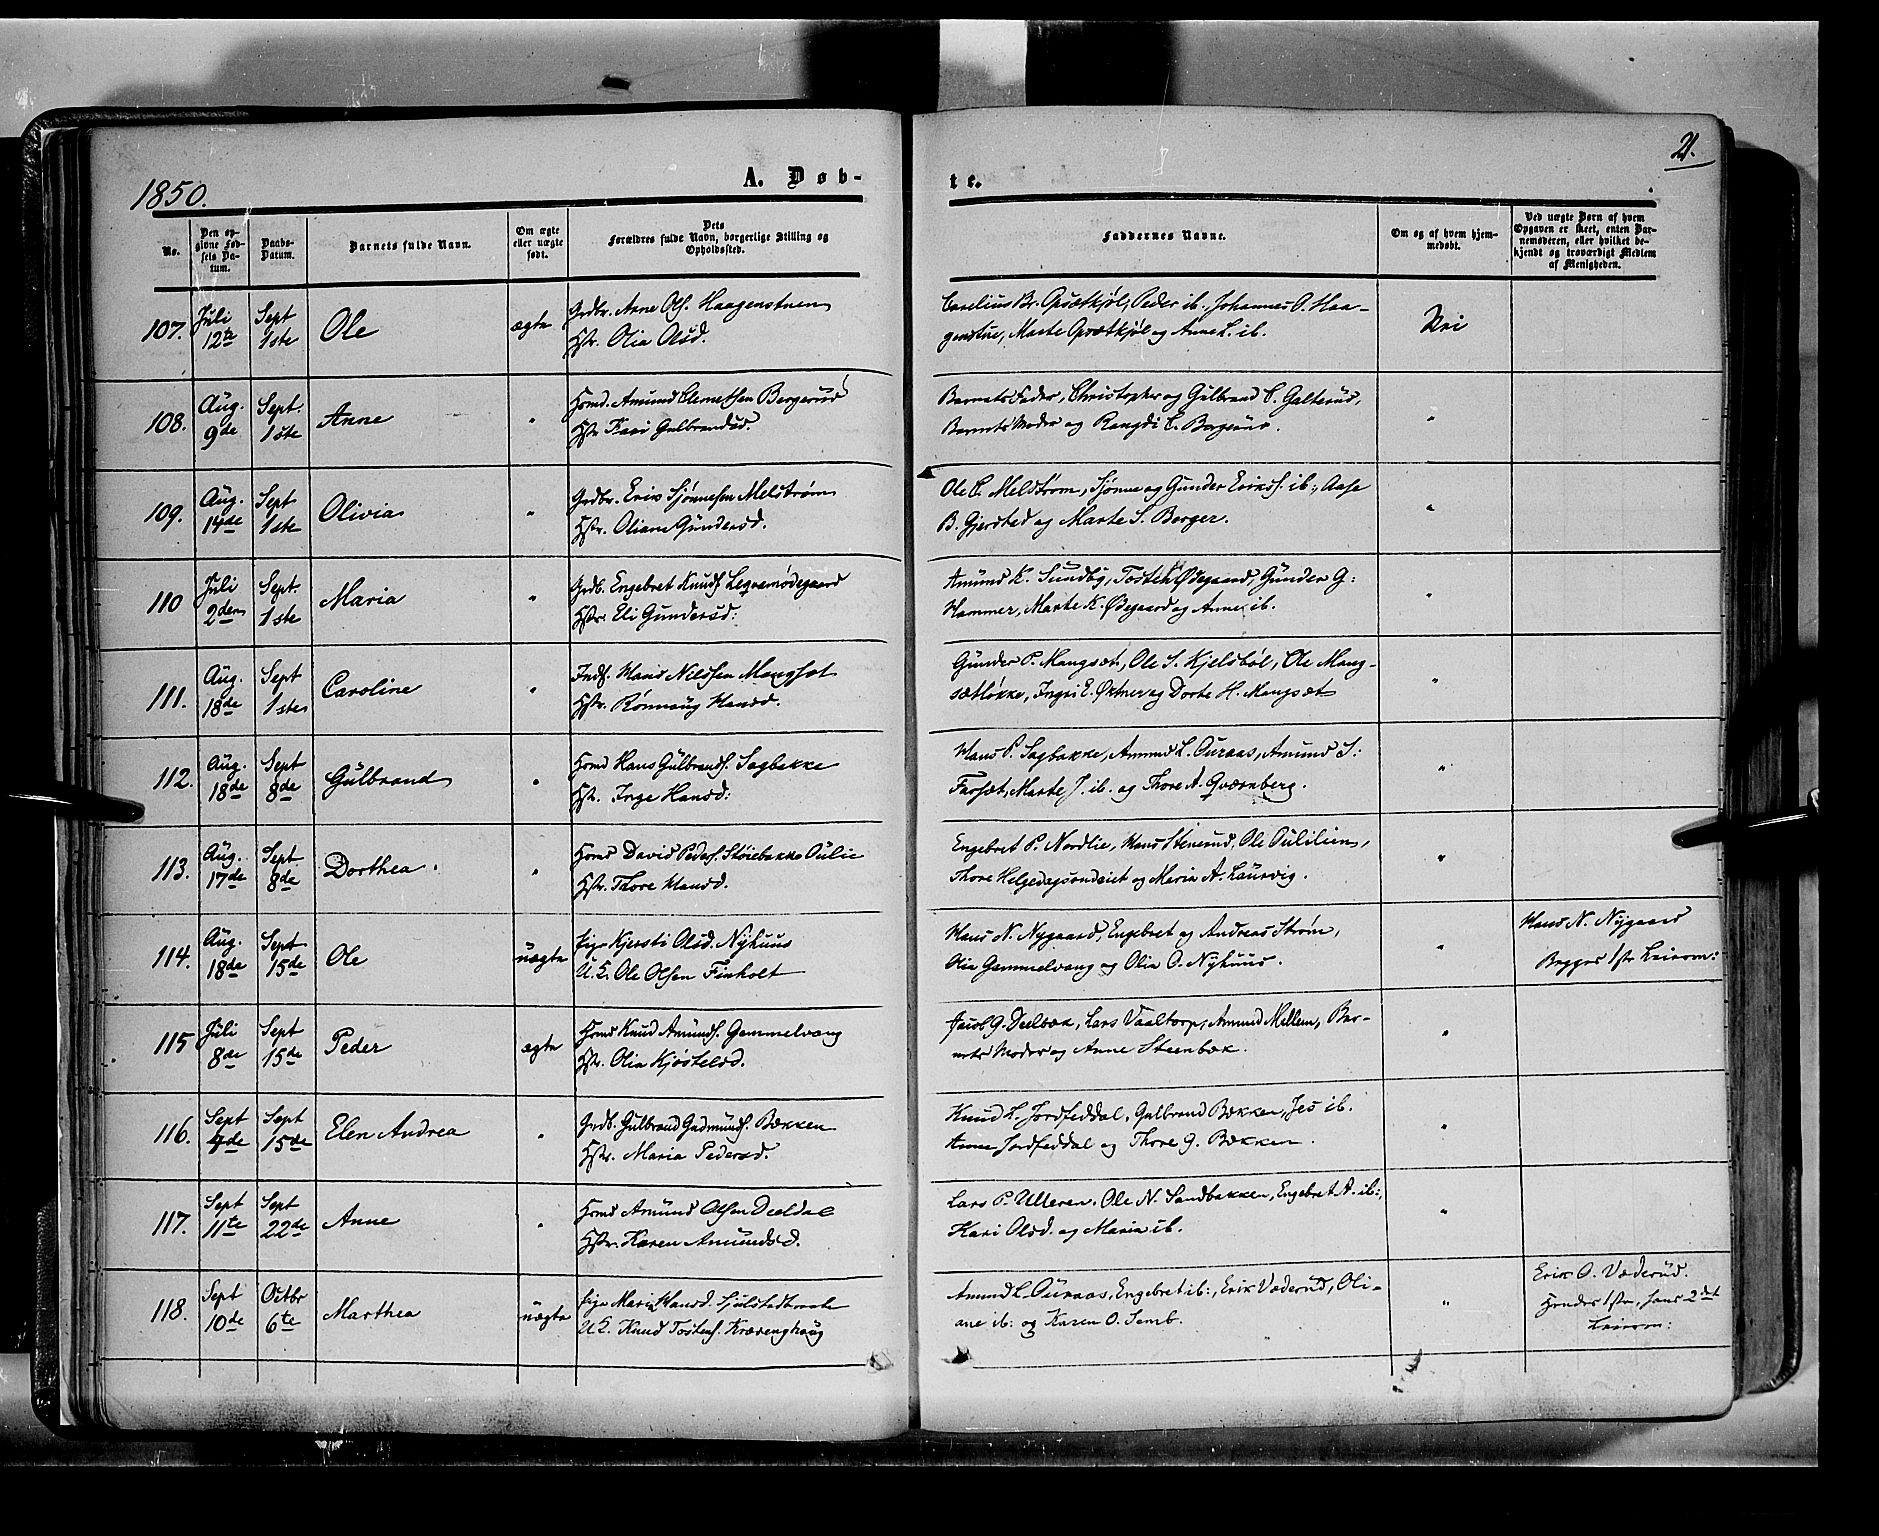 1850.
A. Døb-
te.
21.
No.
Den op-
givne Fød-
sels Da-
tum.
Daabs-
Datum.
Barnets fulde Navn.
Om ægte
eller uægte
født.
Dets
Forældres fulde Navn, borgerlige Stilling og
Opholdssted.
Faddernes Navne.
Om og af hvem hjem-
medøbt.
Ved uægte Børn af hvem
Opgaven er skeet, enten Bar-
nemoderen, eller hvilket be-
kjendt og troværdigt Medlem
af Menigheden.
107. Juli 12te Sept 1ste Ole ægte
Grdbr. Arne Ols. Haagenstuen
Hstr. Olia Olsd.
Carelius Br. Opsætkjøl, Peder ib., Johannes O. Haa-
genstue, Marte Opsætkjøl og Anne L. ib.
Nei
108. Aug. 9de Sept. 1ste Anne "
Hsmd. Amund Clemetsen Bergerud
Hstr Kari Gulbrandsd.
Barnets Fader, Christopher og Gulbrand C. Galterud,
Barnets Moder og Rangdi C. Bergerud.
"
109. Aug. 14de Sept 1ste Olivia "
Grdbr. Erik Sjønnesen Melstrøm
Hstr. Oliane Gundersd.
Ole P. Melstrøm, Sjønne og Gunder Eriks. ib., Aase
B. Gjersted og Marte S. Berger.
"
110 Juli 2den Sept. 1ste Maria "
Grdb. Engebret Knuds. Legramødegaard
Hstr. Eli Gundersd:
Amund K. Sundby, Tosten Ødegaard, Gunder G:
Hammer, Marte K. Ødegaard og Anne ib.
"
111. Aug. 18de Sept 1ste Caroline "
Inds. Hans Nilssen Mangset
Hstr. Rønnaug Hansd.
Gunder P. Mangsæt, Ole S. Kjelsbøl, Ole Mang-
sætløkke, Ingri E. Østner og Dorte H. Mangsæt
"
112. Aug. 18de Sept 8de Gulbrand "
Hsmd Hans Gulbrands. Sagbakke
Hstr. Inge Hansd:
Hans P. Sagbakke, Amund L. Ouraas, Amund S:
Farsæt, Marte J. ib. og Thore A. Qværnberg.
"
113. Aug. 17de Sept 8de Dorthea "
Hsmd David Peders. Støiebakke Oulie
Hstr. Thore Hansd.
Engebret P. Nordlie, Hans Stenerud, Ole Oulilien,
Thore Helgedagsendeiet og Maria A. Laurvig.
"
114. Aug. 18de Sept 15de Ole uægte
Pige Kjersti Olsd. Nyhuus
U. C. Ole Olsen Finholt
Hans N. Nygaard, Engebret og Andreas Strøm,
Olia Gammelvang og Olia O. Nyhuus.
"
Hans N. Nygaard
Begges 1ste Leierm:
115 Juli 8de Sept 15de Peder ægte
Hsmd Knud Amunds. Gammelvang
Hstr. Olia Kjøstelsd.
Jacob G. Deelbæk, Lars Vaaltorp, Amund Mellem, Bar-
nets Moder og Anne Steenbæk.
"
116. Sept 4de Sept 15de Elen Andrea "
Grdb. Gulbrand Gudmunds. Bækken
Hstr. Maria Pedersd.
Knud L. Jordfeddal, Gulbrand Bækken, Jes ib.
Anne Jordfeddal og Thore G. Bækken.
"
117. Sept 11te Sept 22de Anne "
Hsmd Amund Olsen Deeldal
Hstr. Karen Amundsd.
Lars P. Ulleren, Ole N. Sandbakken, Engebret A. ib:,
Kari Olsd. og Maria ib.
"
118. Sept 10de Octbr 6te Marthea uægte
Pige Maria Hansd. Sjulstadtraate
U. C. Knud Tostens. Kræranghaug
Amund L. Ouraas, Engebret ib:, Erik Væderud, Oli-
ane ib: og Karen O. Semb.
"
Erik O. Væderud.
Hendes 1ste, hans 2det
Leierm: